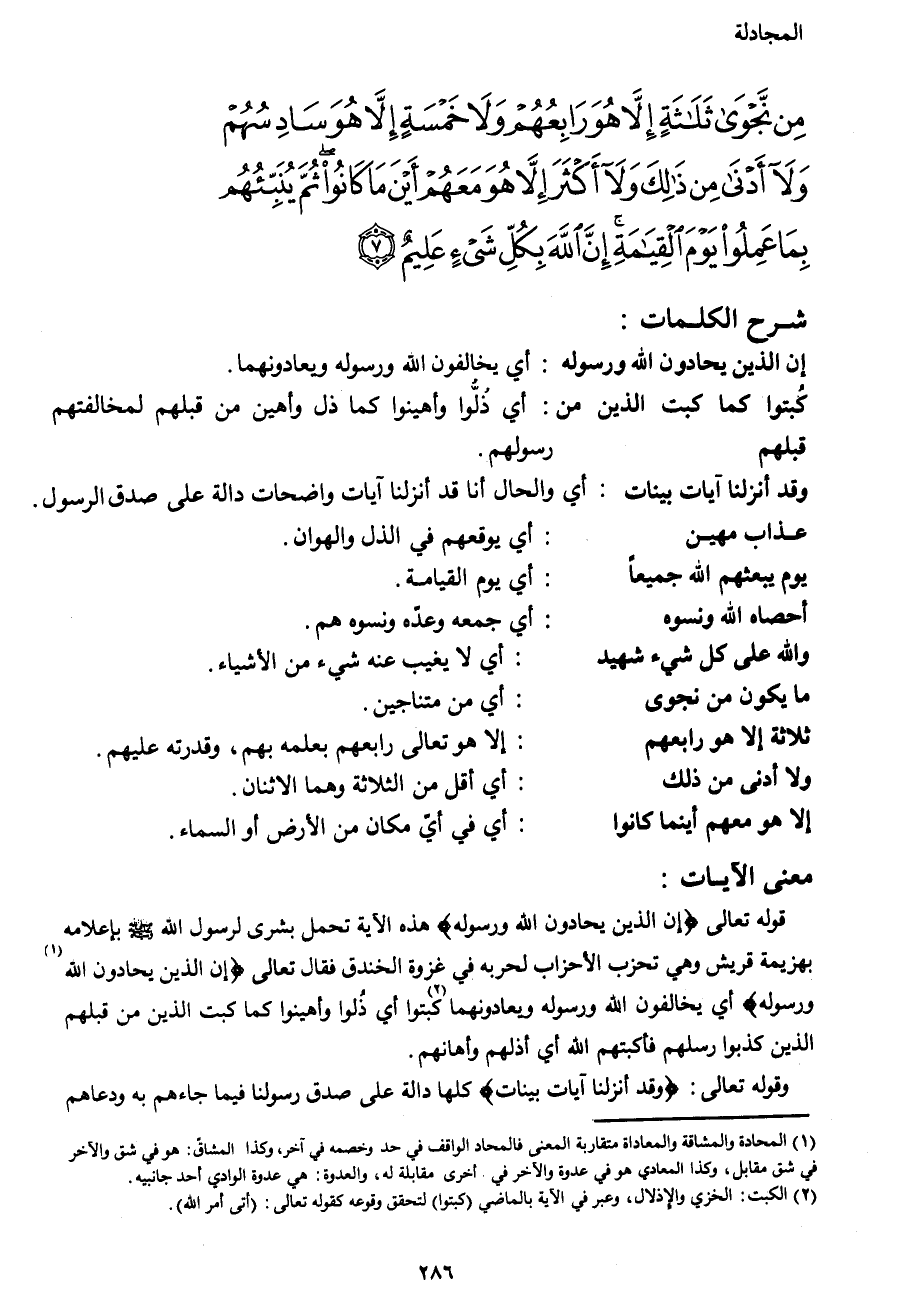 المجادلة
مِن نَّجْوَىٰ ثَلَـٰثَةٍ إِلَّا هُوَ رَابِعُهُمْ وَلَا خَمْسَةٍ إِلَّا هُوَ سَادِسُهُمْ
وَلَآ أَدْنَىٰ مِن ذَٰلِكَ وَلَآ أَكْثَرَ إِلَّا هُوَ مَعَهُمْ أَيْنَ مَا كَانُوا۟ ۖ ثُمَّ يُنَبِّئُهُم
بِمَا عَمِلُوا۟ يَوْمَ ٱلْقِيَـٰمَةِ ۚ إِنَّ ٱللَّهَ بِكُلِّ شَىْءٍ عَلِيمٌ ٧
شـرح الكلـمات :
إن الذين يحادون الله ورسوله : أي يخالفون الله ورسوله ويعادونهما.
كُبتوا كما كبت الذين من : أي ذُلُّوا وأهينوا كما ذل وأهين من قبلهم لمخالفتهم
قبلهم رسولهم.
وقد أنزلنا آيات بينات : أي والحال أنا قد أنزلنا آيات واضحات دالة على صدق الرسول.
عـذاب مهيـن : أي يوقعهم في الذل والهوان.
يوم يبعثهم الله جميعاً : أي يوم القيامـة.
أحصاه الله ونسوه : أي جمعه وعدّه ونسوه هم.
والله على كل شيء شهيد : أي لا يغيب عنه شيء من الأشياء.
ما يكون من نجوى : أي من متناجين.
ثلاثة إلا هو رابعهم : إلا هو تعالى رابعهم بعلمه بهم، وقدرته عليهم.
ولا أدنى من ذلك : أي أقل من الثلاثة وهما الاثنان.
إلا هو معهم أينما كانوا : أي في أيّ مكان من الأرض أو السماء.
معنى الآيـات :
قوله تعالى ﴿إن الذين يحادون الله ورسوله﴾ هذه الآية تحمل بشرى لرسول الله ﷺ بإعلامه
بهزيمة قريش وهي تحزب الأحزاب لحربه في غزوة الخندق فقال تعالى ﴿إن الذين يحادون الله(١)
ورسوله﴾ أي يخالفون الله ورسوله ويعادونهما(٢) كُبتوا أي ذُلوا وأهينوا كما كبت الذين من قبلهم
الذين كذبوا رسلهم فأكبتهم الله أي أذلهم وأهانهم.
وقوله تعالى : ﴿وقد أنزلنا آيات بينات﴾ كلها دالة على صدق رسولنا فيما جاءهم به ودعاهم
(١) المحادة والمشاقة والمعاداة متقاربة المعنى فالمحاد الواقف في حد وخصمه في آخر، وكذا المشاقّ: هو في شق والآخر
في شق مقابل، وكذا المعادي هو في عدوة والآخر في . أخرى مقابلة له، والعدوة: هي عدوة الوادي أحد جانبيه.
(٢) الكبت: الخزي والإذلال، وعبر في الآية بالماضي (كبتوا) لتحقق وقوعه كقوله تعالى : (أتى أمر الله).
٢٨٦